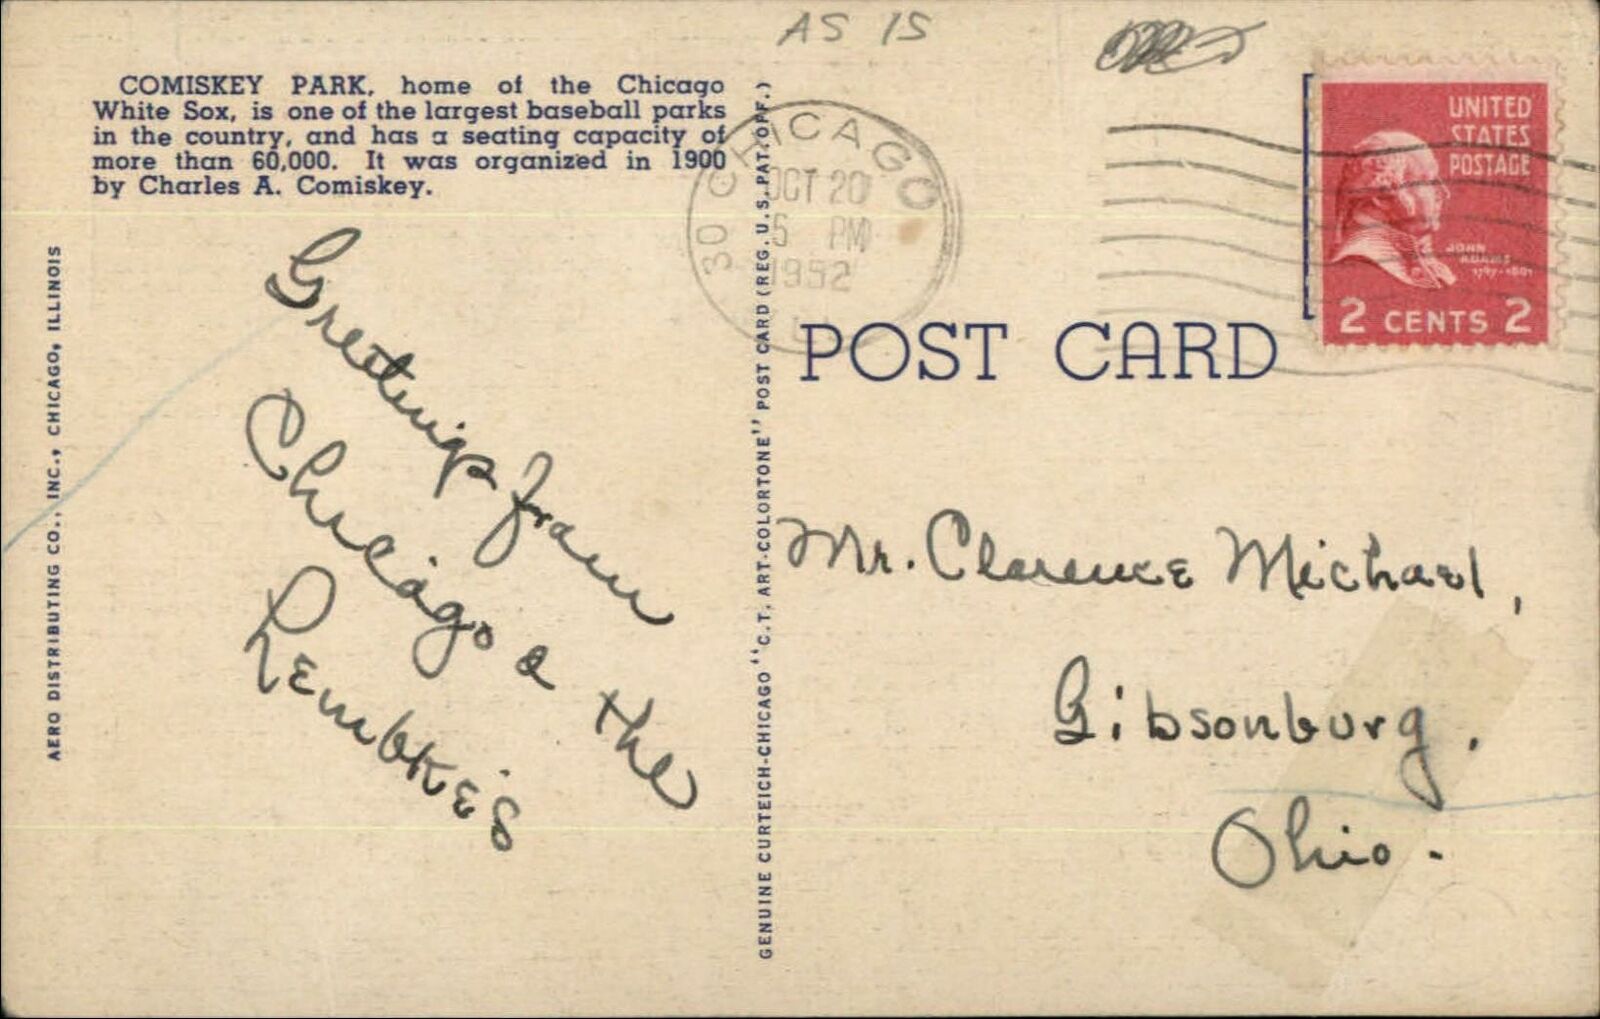 AS IS
COMISKEY PARK, home of the Chicago
White Sox, is one of the largest baseball parks
in the country, and has a seating capacity of
more than 60,000. It was organized in 1900
by Charles A. Comiskey.
AERO DISTRIBUTING CO., INC., CHICAGO, ILLINOIS
Greetings from
Chicago & the
Lembke's
GENUINE CURTEICH-CHICAGO "C.T. ART-COLORTONE" POST CARD (REG. U.S. PAT. OFF.)
CHICAGO
30
OCT 20
5 PM
1952
UNITED
STATES
POSTAGE
JOHN
ADAMS
1797-1801
2 CENTS 2
POST CARD
Mr. Clarence Michael,
Gibsonburg.
Ohio.